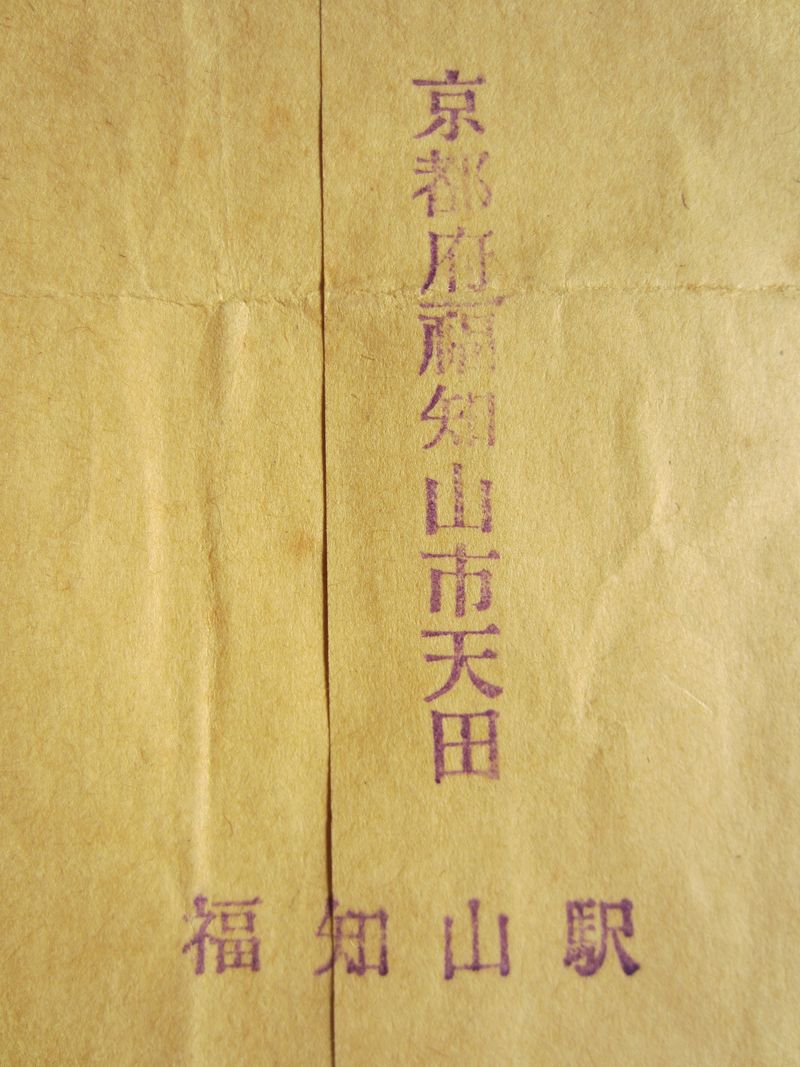 京都府福知山市天田
福知山駅